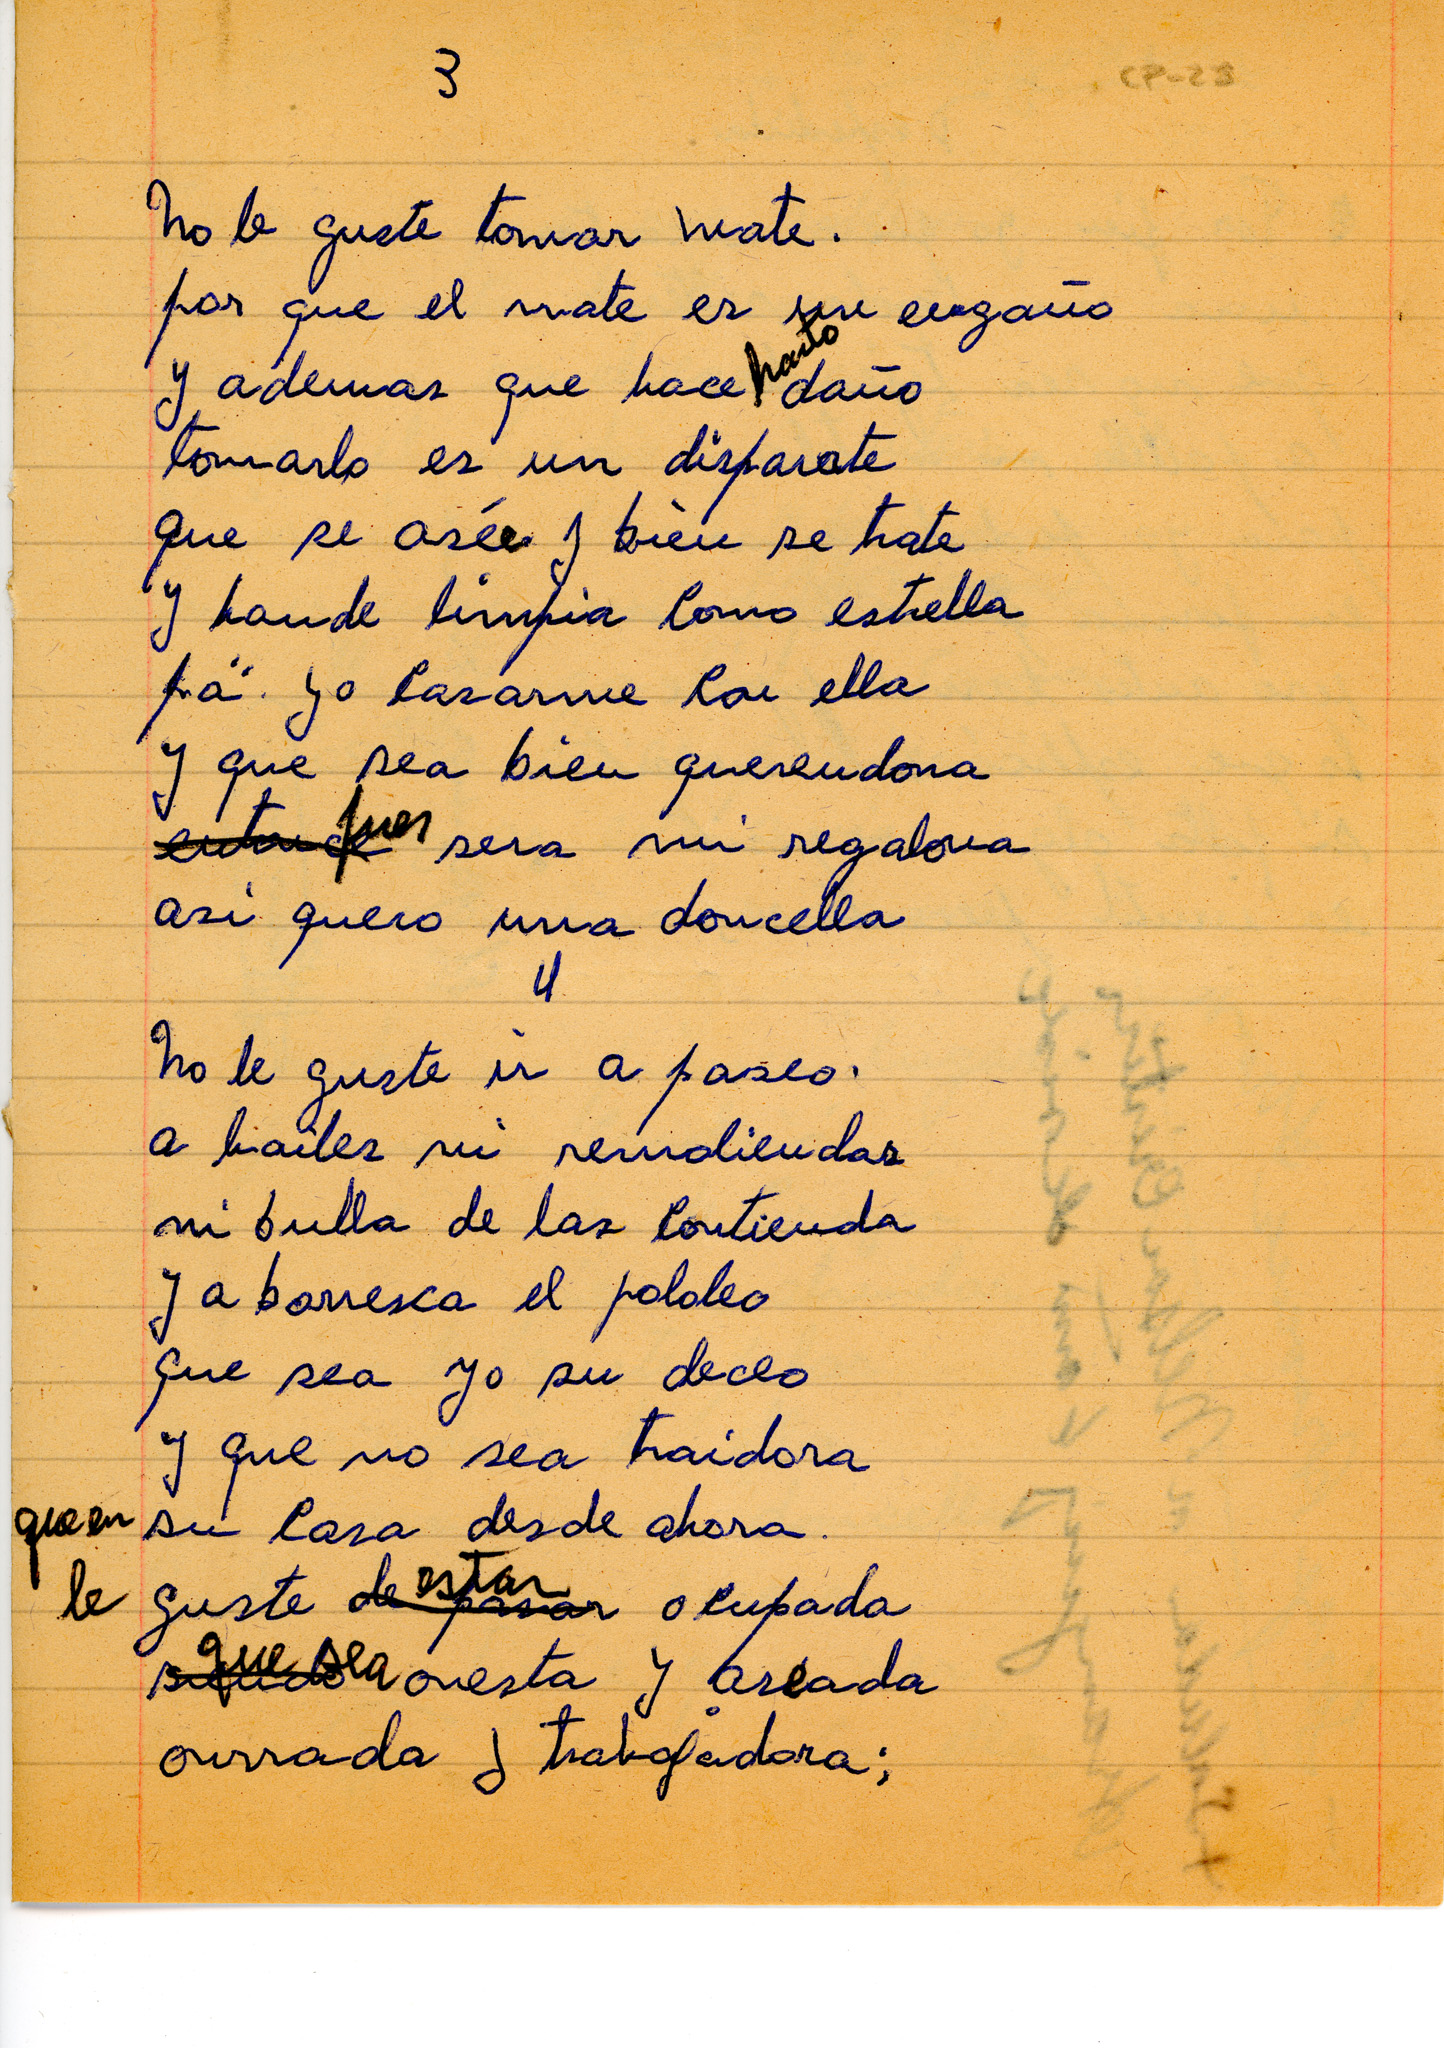 3
CP-23
No le guste tomar mate.
por que el mate es un engaño
y ademas que hace harto daño
tomarlo es un disparate
que se asée y bien se trate
y hande limpia como estrella
pa". yo casarme con ella
y que sea bien querendona
entonce pues sera mi regalona
asi quero una doncella
4
No le guste ir a paseo.
a bailes ni remoliendas
ni bulla de las contienda
y aborresca el pololeo
que sea yo su deceo
y que no sea traidora
que en su casa desde ahora.
le guste de pasar estar ocupada
que sea onesta y aseada
onrrada y trabajadora;